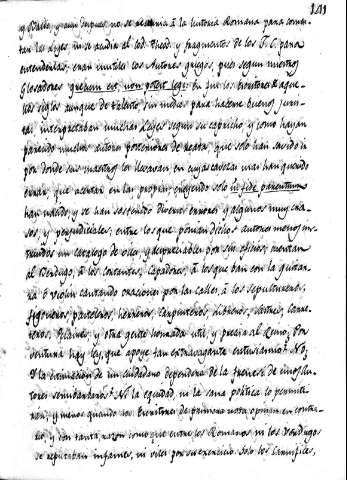 141
y Baldo, y aun despues no se recurria à la historia Romana para comen-
tar las Leyes, ni se acudia al Cod. Theod. y fragmentos de los J. C. para
entenderlas; eran inutiles los Autores griegos, pues segun nuestros
Glosadores græcum est, non potest legi. En fin los Escritores de aque-
llos siglos aunque de talento, sin medios para hacerse buenos juris-
tas interpretaban muchas Leyes segun su capricho, y como hayan
parecido muchos autores posteriores de reata, que solo han sabido ir
por donde sus maestros los llevaban, en cuyas cabezas mas han querido
errar, que acertar en las proprias, creyendo solo in fide parentum
han nacido, y se han sostenido diversos errores y algunos muy cra-
sos, y perjudiciales; entre los que ponian dichos autores menos ins-
truidos un catalogo de viles y despreciables por sus oficios; contaban
al Verdugo, à los Cortantes, Capadores, à los que van con la guitar-
ra ò violin cantando oraciones por las calles, à los sepultureros,
figoneros, pasteleros, herreros, carpinteros, libreros, sastres, carre-
teros, y otra gente honrada util, y precisa al Reyno. Por
ventura hay ley, que apoye tan extravagante entusiasmo? No.
Y la estimacion de un ciudadano dependera de la de unos Au-
tores semibarbaros? Ni la equidad, ni la sana politica lo permiti-
ran, y menos quando los Escritores de primera nota opinan en contra-
rio, y con tanta razon como que entre los Romanos, ni los Verdugos
se reputaban infames, ni viles por su exercicio. Solo los Carnifices,